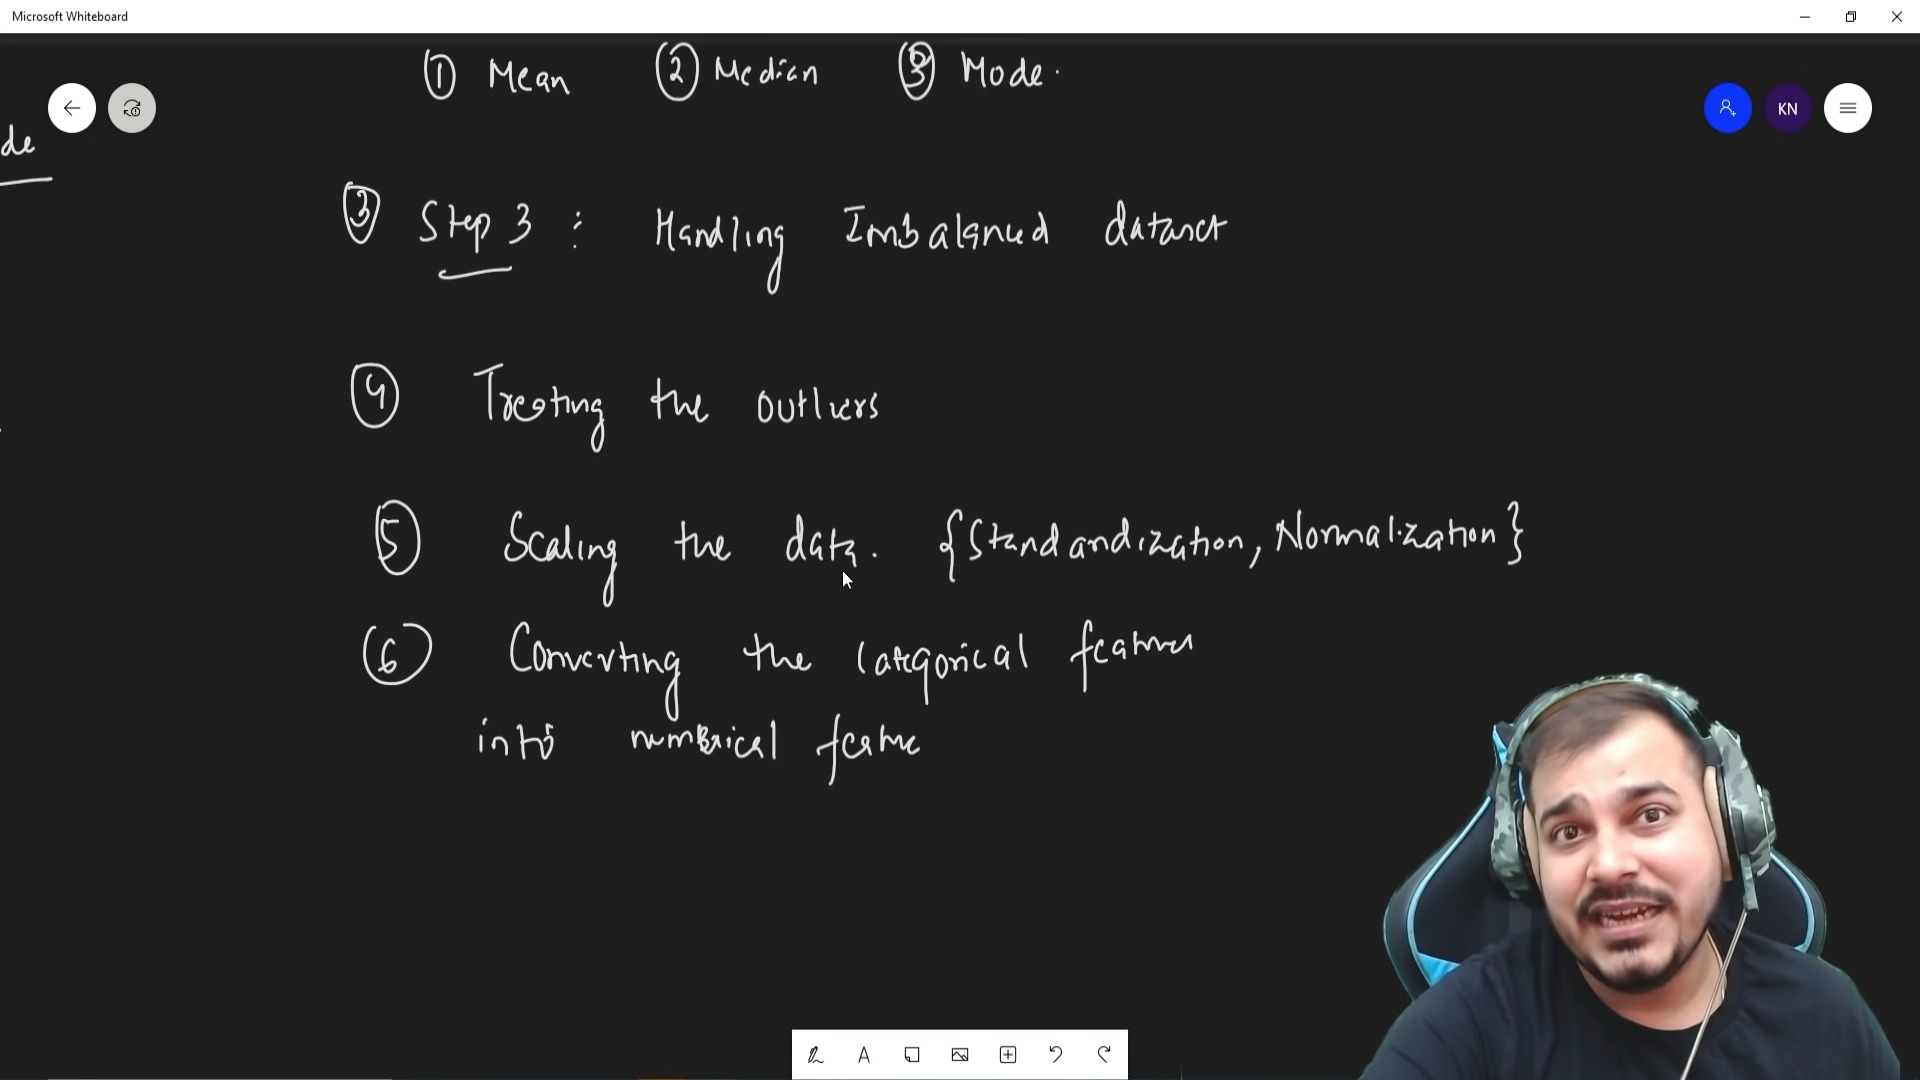 Microsoft Whiteboard
① Mean ② Median ③ Mode.
KN
de
③ Step 3 : Handling Imbalanced dataset
④ Treating the outliers
⑤ Scaling the data. {Standardization, Normalization}
⑥ Converting the categorical features
into numerical feature
A